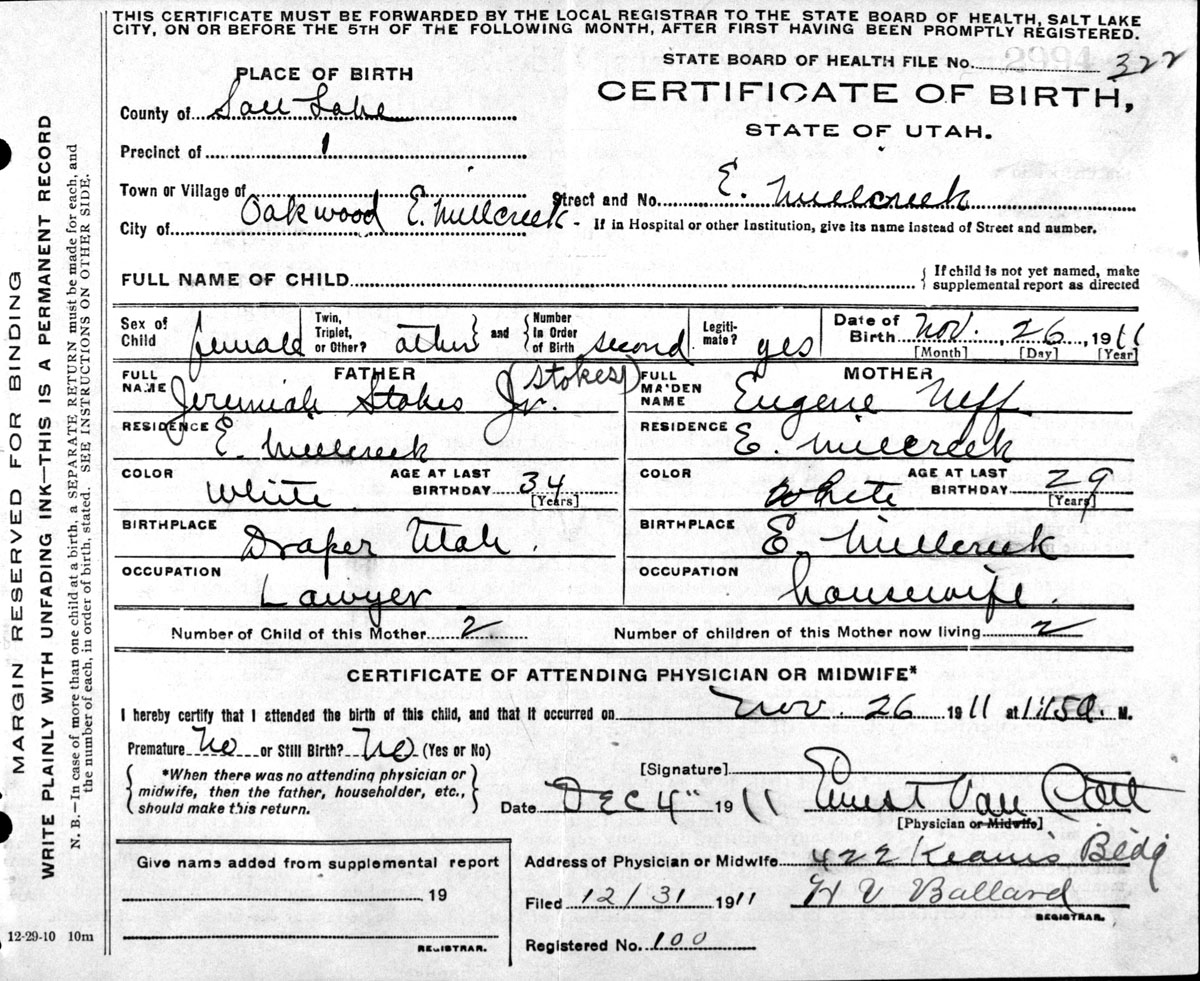 THIS CERTIFICATE MUST BE FORWARDED BY THE LOCAL REGISTRAR TO THE STATE BOARD OF HEALTH, SALT LAKE
CITY, ON OR BEFORE THE 5TH OF THE FOLLOWING MONTH, AFTER FIRST HAVING BEEN PROMPTLY REGISTERED.
STATE BOARD OF HEALTH FILE No. 2994 322
PLACE OF BIRTH
CERTIFICATE OF BIRTH,
STATE OF UTAH.
County of Salt Lake
Precinct of 1
Town or Village of
Street and No. E. Millcreek
City of Oakwood E. Millcreek
If in Hospital or other Institution, give its name instead of Street and number.
FULL NAME OF CHILD
If child is not yet named, make
supplemental report as directed
Sex of Child female
Twin, Triplet, or Other? other
and Number In Order of Birth second
Legiti-mate? yes
Date of Birth Nov. 26 1911
[Month] [Day] [Year]
FATHER
FULL NAME Jeremiah Stokes Jr. (Stokes)
MOTHER
FULL MAIDEN NAME Eugene Neff
RESIDENCE E. Millcreek
RESIDENCE E. Millcreek
COLOR White AGE AT LAST BIRTHDAY 34 [Years]
COLOR White AGE AT LAST BIRTHDAY 29 [Years]
BIRTHPLACE Draper Utah.
BIRTHPLACE E. Millcreek
OCCUPATION Lawyer
OCCUPATION housewife.
Number of Child of this Mother 2
Number of children of this Mother now living 2
CERTIFICATE OF ATTENDING PHYSICIAN OR MIDWIFE*
I hereby certify that I attended the birth of this child, and that it occurred on Nov. 26 1911 at M.
Premature No or Still Birth? No (Yes or No)
*When there was no attending physician or
midwife, then the father, householder, etc.,
should make this return.
[Signature] Ernest Van Cott
Date DEC 4" 1911
[Physician or Midwife]
Give name added from supplemental report
19
REGISTRAR.
Address of Physician or Midwife 422 Kearns Bldg
Filed 12/31 1911 H V Ballard
REGISTRAR.
Registered No. 100
12-29-10 10m
MARGIN RESERVED FOR BINDING
WRITE PLAINLY WITH UNFADING INK—THIS IS A PERMANENT RECORD
N. B.—In case of more than one child at a birth, a SEPARATE RETURN must be made for each, and
the number of each, in order of birth, stated. SEE INSTRUCTIONS ON OTHER SIDE.